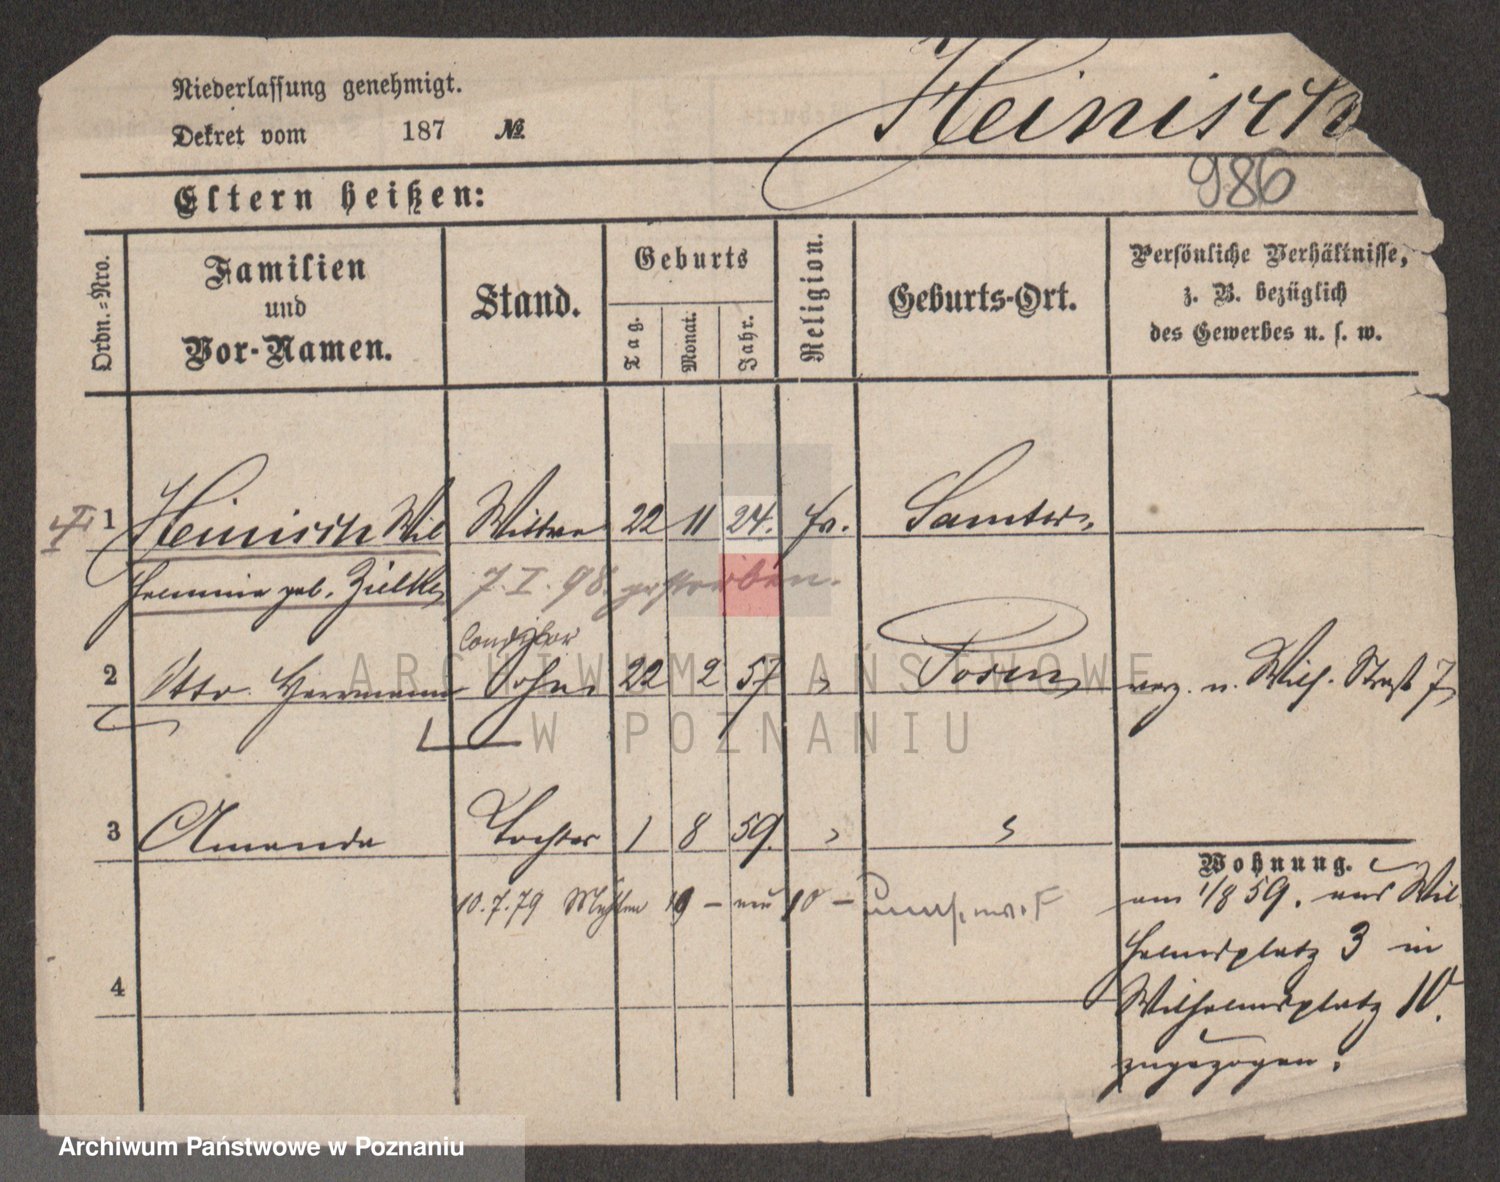 Niederlassung genehmigt.
Heinisch
Dekret vom 187 №
986
Eltern heißen:
Ordn.-Nro.
Familien
und
Vor-Namen.
Stand.
Geburts
Tag.
Monat.
Jahr.
Religion.
Geburts-Ort.
Persönliche Verhältnisse,
z. B. bezüglich
des Gewerbes u. s. w.
1 Heinisch Wil Wittwe 22 11 24. Ev. Samter.
helmine geb. Zielke 7. I. 98. gestorben.
Conditor
2 Otto Herrmann Sohn 22 2 57 " Posen verz. n. Wilh. Straß 7
3 Amanda Tochter 1 8 59. " "
Wohnung.
10.7.79 19 – 10 –
am 1/8 59. aus Wil
helmsplatz 3 in
4
Wilhelmsplatz 10.
zugezogen.
ARCHIWUM PAŃSTWOWE
W POZNANIU
Archiwum Państwowe w Poznaniu